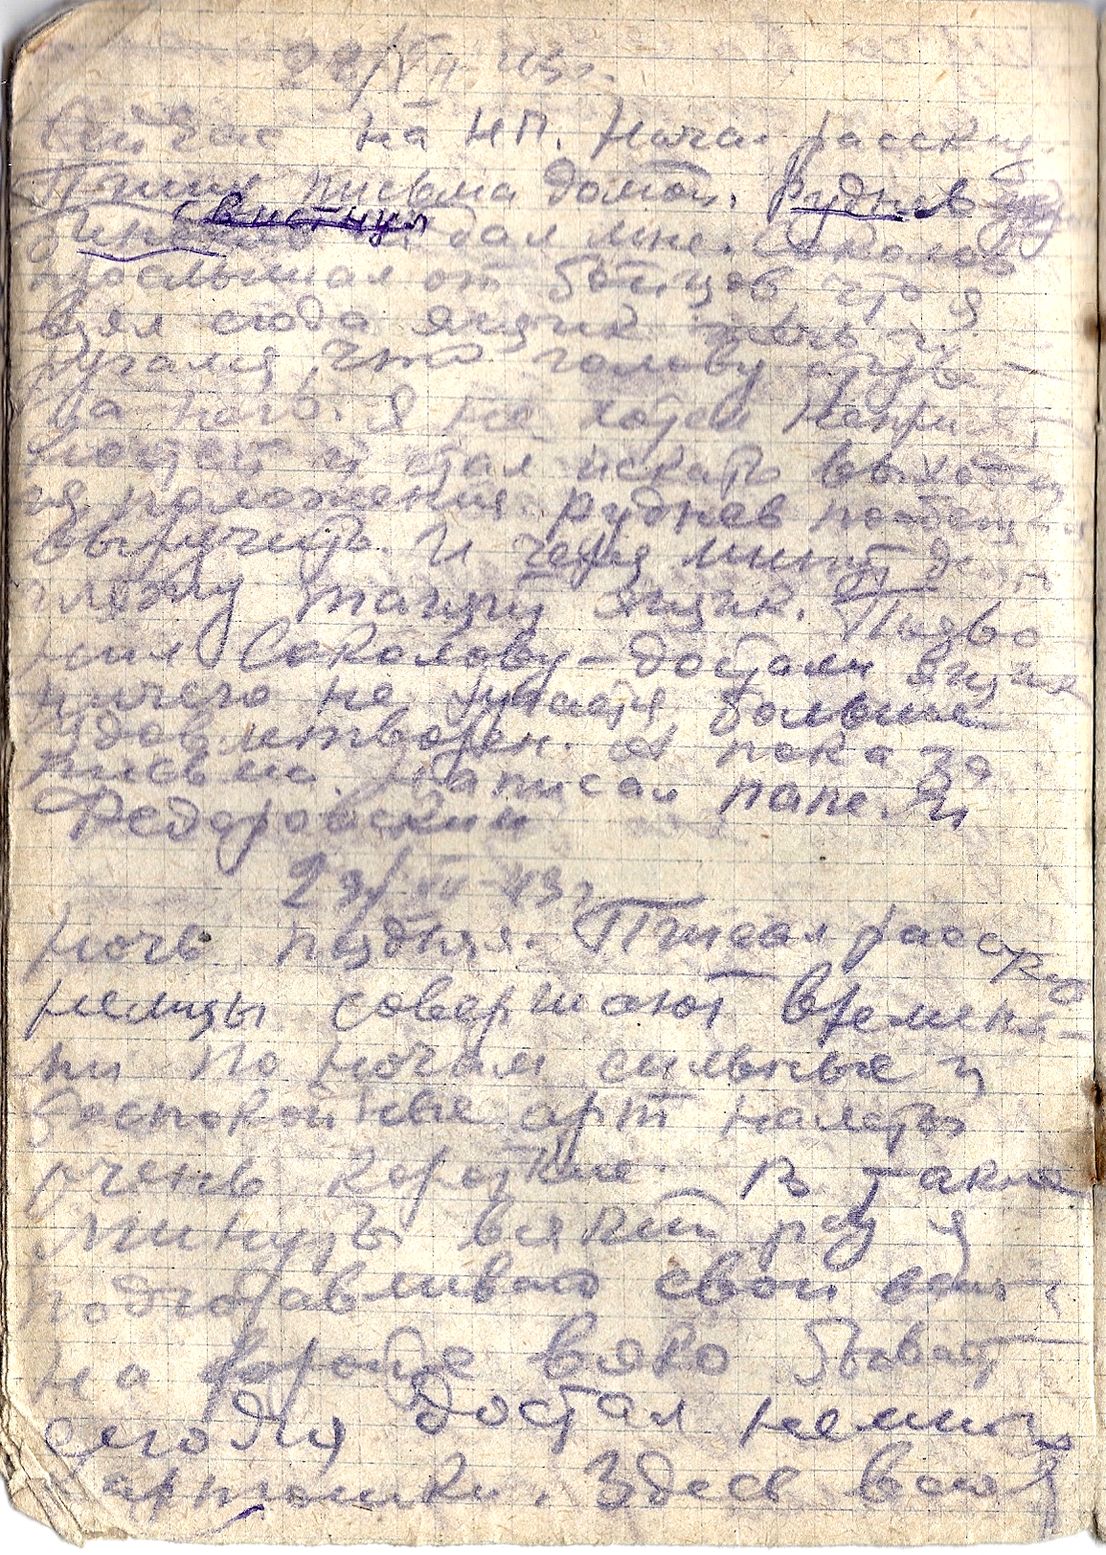 22/VII-43г.
Сейчас на НП. Начал расск
Пишу письма домой. Руднев
свистнул
дал мне. Соколов
прослышал от бойцов, что я
взял сюда ящик
ругался, что голову
за него. Я не хотел неприят-
ностей и стал искать выхода
из положения. Руднев пообещал
выручить. И через минут де
гляжу тащу ящик. Позво
нил Соколову – достали ящик
ничего не ругается, больше
удовлетворен. А пока за
письма. Написал папе. И
Федоровским
23/VII-43г
Ночь поздняя. Писал расска
немцы совершают времена-
ми по ночам сильные и
беспокойные арт налеты
очень короткие. В такие
минуты всякий раз я
подготавливаю свои
на всяко бывает
сегодня достал немного
картошки. Здесь